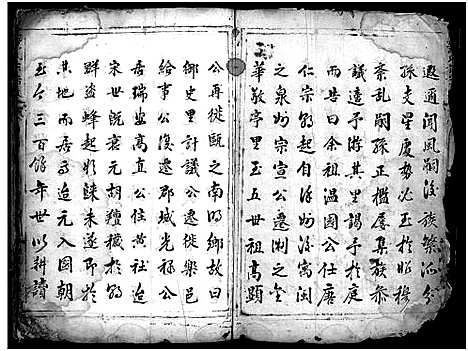 遐通聞風嗣後族繁派分
孫支星度勢必至於昭穆
紊乱嗣孫正檻屡集族恭
議遠予游其里謁予於庭
而告曰余祖温國公仕唐
仁宗朝起自徐州後寓閩
之泉州宗宣公遷浙之金
華敬亭里至五世祖高顯
公再徙甌之南明鄉故曰
御史里計議公遷徙樂邑
給事公復遷郡城光禄公
居瑞益高直公住黄社迨
宋世既衰元胡羶穢於朝
群盗蜂起彤陳朱遂即於
其地而居焉迨元入國朝
至今三百餘年世以耕讀